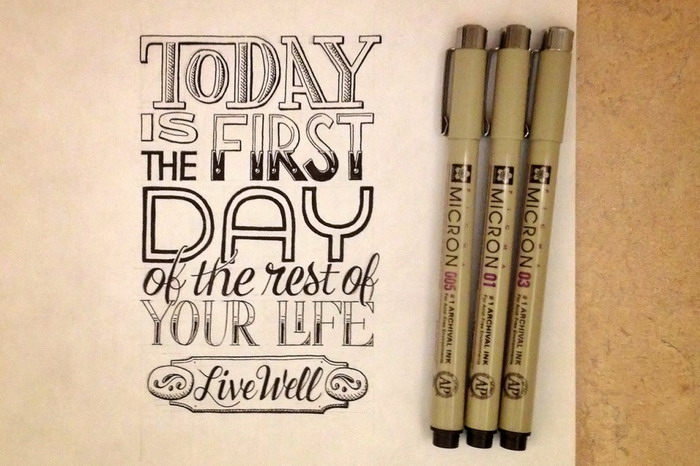 TODAY
IS FIRST
THE
DAY
of the rest of
YOUR LIFE
Live Well
MICRON 005 #1 ARCHIVAL INK
MICRON 01 #1 ARCHIVAL INK
MICRON 03 #1 ARCHIVAL INK
AP
AP
AP